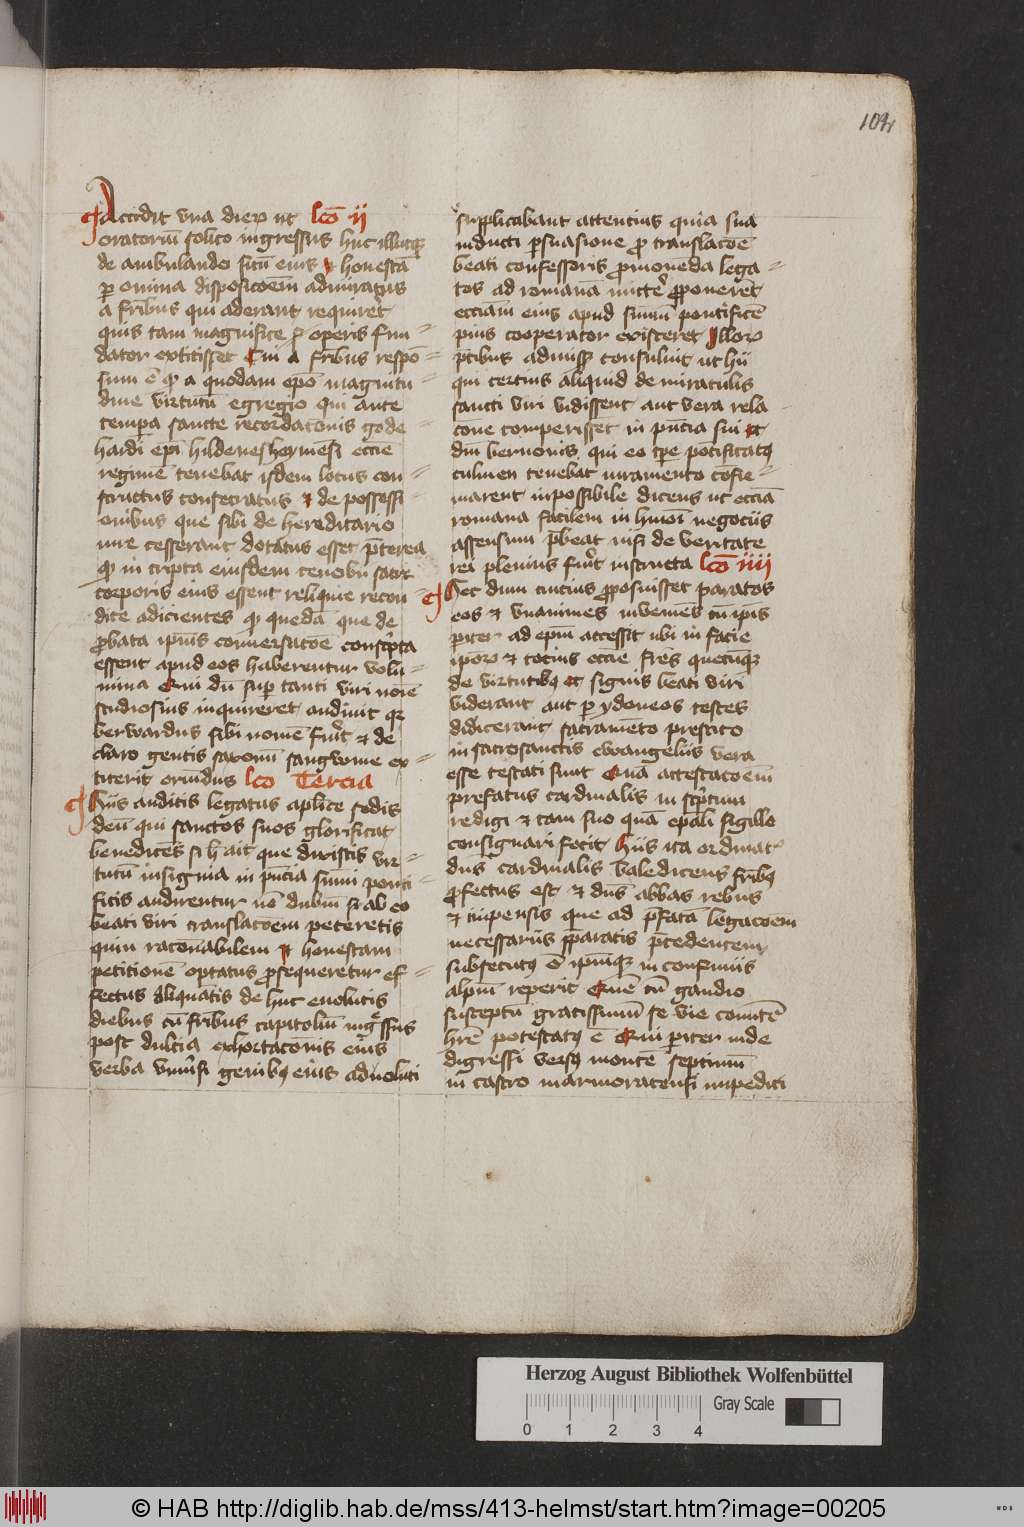 104
Accidit vna dierꝫ ut lcō ii
oratoriū solito ingressus huc illucqꝫ
de ambulando sitū eius et honestā
ꝑ omnia dispositōem admiratus
a fribus qui aderant requireret
quis tam magnifice operis fun=
dator extitisset Cui a fribus respō=
sum ē ꝙ a quodam epō magnitu=
dine virtutū egregio qui ante
tempa sancte recordatōnis gode=
hardi epi hildenesheymēsi eccīe
regimē tenebat isdem locus con=
structus consecratus et de possessi=
onibus que sibi de hereditario
iure cesserant dotatus esset p̄terea
ꝙ in cripta eiusdem cenobii sacri
corporis eius essent reliquie recon=
dite adicientes ꝙ quedā que de
ꝓbata ipius conuersatōe conscrpta
essent apud eos haberentur volu=
mina Qui dū suꝑ tanti viri noīe
studiosius inquireret audiuit qꝛ
berwardus sibi nomē fuit et de
claro gentis saxonū sangwine ex=
titerit oriūdus lco Tercia
Hiis auditis legatus aplice sedis
deū qui sanctos suos glorificat
benedicēs si h ait que dixistis vir=
tutū insignia in pn̄cia summi ponti=
ficis audirentur nō dubiū si ab eo
beati viri translatōem peteretis
quin ratōnabilem et honestam
petitionē optatus ꝓsequeretur ef=
fectus aliquatis de hinc euolutis
diebus cū fribus capitoliū ingressus
post dulcia exhortatōnis eius
verba vniuersi genibꝫ eius aduoluti
supplicabant attentius quia sua
inducti ꝑsuasione ꝓ translatōe
beati confessoris ꝓmouēda lega=
tos ad romanā mittere ꝓponeret
eccīam eius apud summū pontificē
pius cooperator existeret Illorꝫ
p̄cibus admissꝫ consuluit ut hii
qui certius aliquid de miraculis
sancti viri vidissent aut vera rela=
tōne comperissent in pn̄cia sui et
dm̄ bernonis qui eo tꝑe pōtificatꝰ
culmen tenebat iuramento cōfir=
marent inpossibile dicens ut eccīa
romana facilem in hmōi negociis
assensum p̄beat nisi de veritate
rei plenius fuerit instructa lcō iiii
Hec dum cūcius ꝓposuisset paratos
eos et vnanimes inueniēs cū ipis
ꝑiter ad epm̄ accessit ubi in facie
ipōrꝫ et tocius eccīe frēs quecūqꝫ
de virtutibꝫ et signis beati viri
viderant aut ꝑ ydoneos testes
didicerant sacramēto prestito
in sacrosanctis ewangeliis vera
esse testati sunt Quā attestatōem
prefatus cardinalis in scrptum
redigi et tam suo quā epāli sigillo
consignari fecit Hiis ita ordinatꝭ
dūs cardinalis valedicens fribꝫ
ꝓfectus est et dūs abbas rebus
et impensis que ad p̄fatā legacōem
necessariis p̄paratis p̄cedentem
subsecutꝰ ē ipm̄qꝫ in confiniis
alpiū reperit Quē cū gaudio
susceptū gratissimū se vie comitē
hr̄e potestatꝰ ē Qui ꝑiter inde
digressi versꝰ montē septimū
in castro marmoratensi impediti
Herzog August Bibliothek Wolfenbüttel
Gray Scale
0 1 2 3 4
© HAB http://diglib.hab.de/mss/413-helmst/start.htm?image=00205